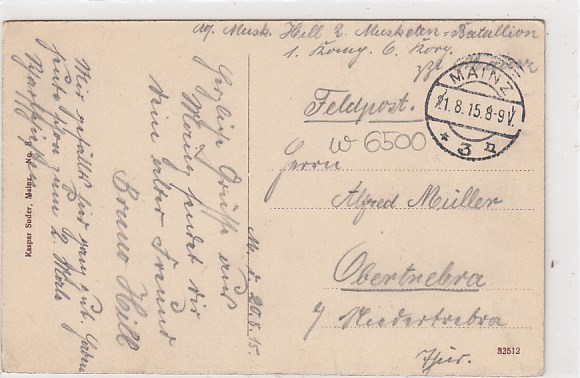 Abs. Musk. Hill 2. Musketen-Batallion
1. Komp. 6. Korp.
Feldpost.
MAINZ
21.8.15.8-9V.
* 3 n
W 6500
Herrn
Alfred Müller
Obertrebra
b/ Niedertrebra
Thür.
82512
M. d. 20.8.15.
Herzliche Grüße aus
Mainz sendet dir
dein alter Freund
Bruno Hill
Mir gefällts hier ganz gut. Haben
heute schon zum 2. Male
Kaspar Suder, Mainz, No. 8